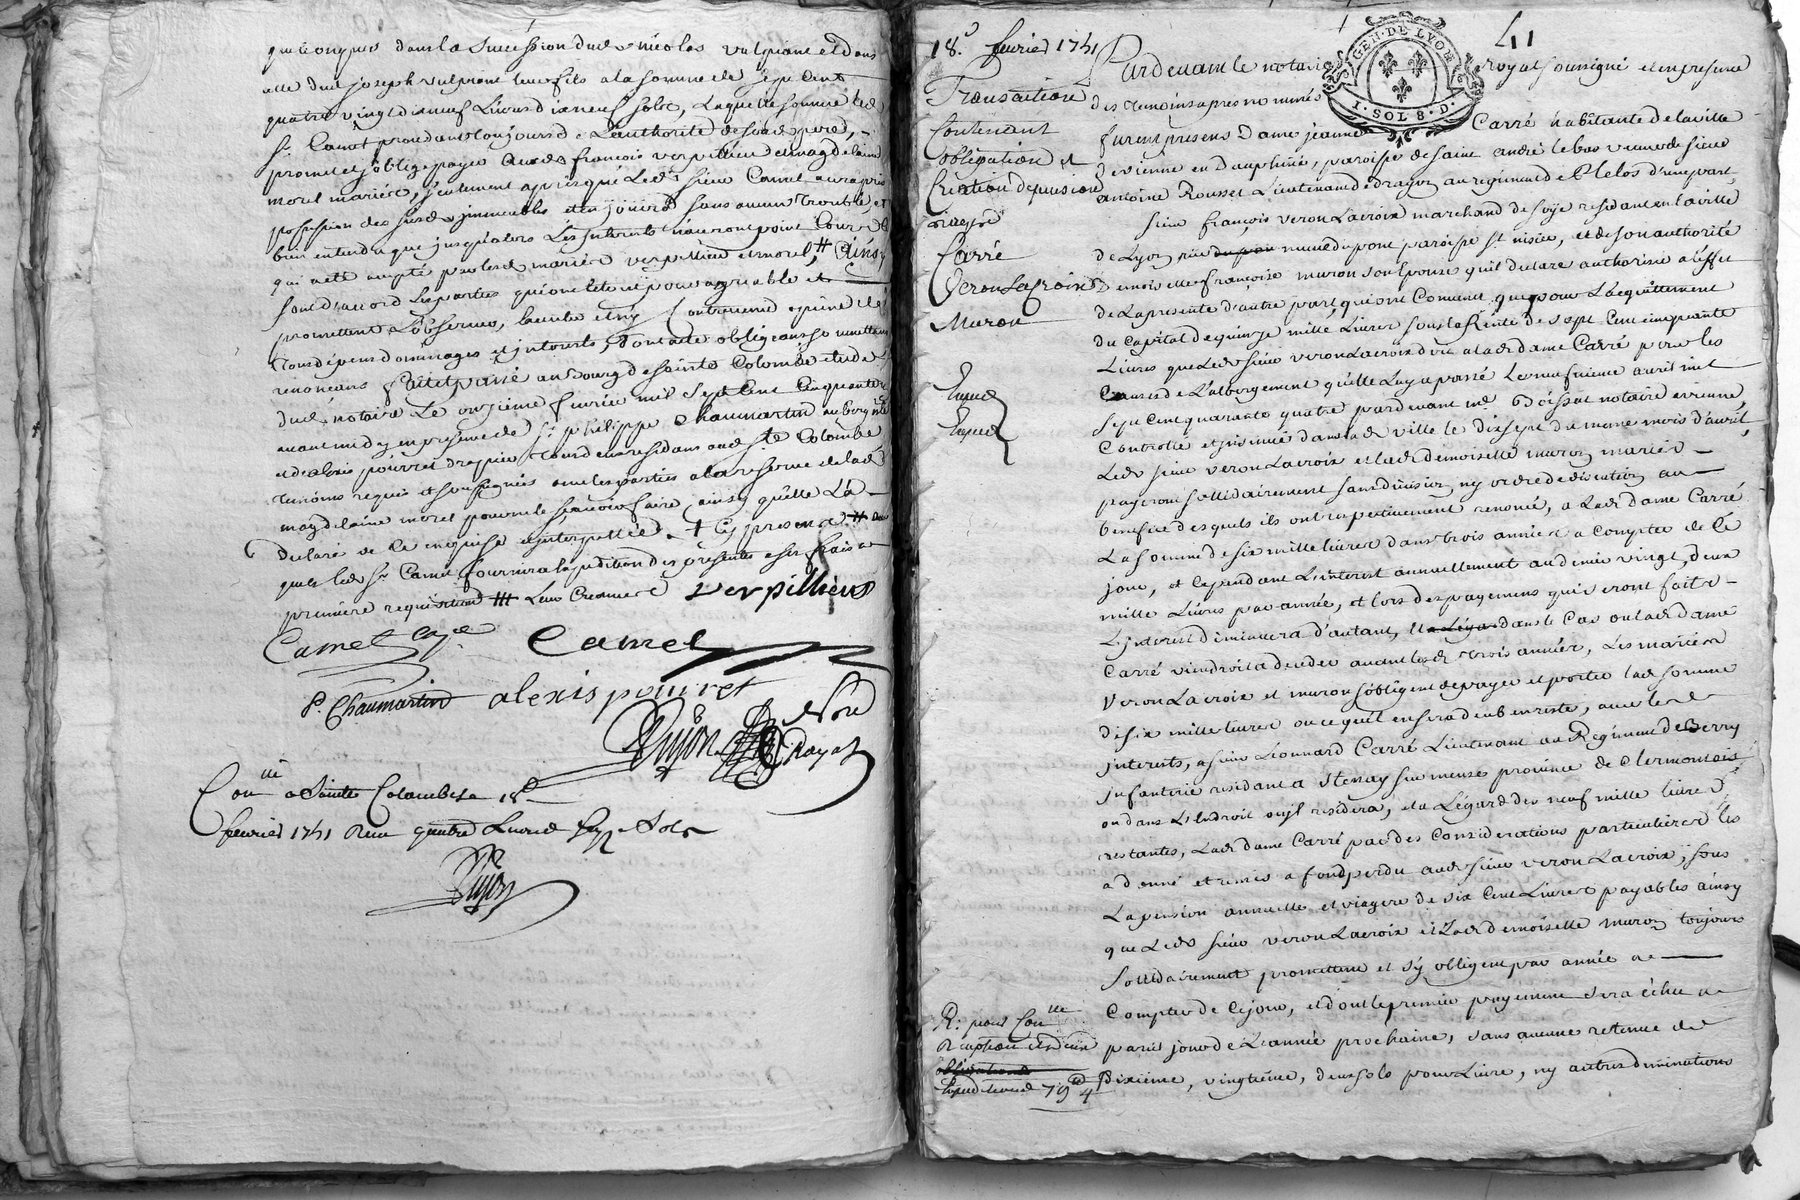 quelconques dans la succession dud. nicolas vulpiant et dans
celle dud. joseph vulpiant leur fils a la somme de sept cent
quatre vingt dix neuf Livres dix neuf sols, Laquelle somme led.
sr. Camet procedant toujours de L'authorité de son d. pere,
promet et s'oblige payer aux d. françois verpillieu et magdelaine
morel mariés, seulement après que Led. sieur Camet aura pris
possession des susd. immeubles et en jouira sans aucun trouble, et
bien entendu que jusqu'alors Les interets n'auront point Cours
qui a été accepté par lesd. mariés verpillieu et morel, # Ainsy
sont d'accord Les parties qui ont le tout pour agreable et
promettent L'observer, sans y Contrevenir a peine de
tous dépens dommages et interests, dont acte obligeans soumettans
renonceans fait et passé au Bourg de sainte Colombe etude
dud. notaire Le onzieme fevrier mil sept Cent Cinquante un
avant midy en presence de sr. philippe Chaumartin aubergiste
et d'alexis pourret drapier tous deux residans aud. ste. Colombe
temoins requis et soussignés avec les parties a la reserve de lad.
magdelaine morel pour ne le scavoir faire ainsy qu'elle L'a
declaré de ce enquise et interpellée. + Cy presens # 
que led. sr. Camet fournira expedition des presentes a ses frais a
premiere requisition ### Leur Creancier verpillieux
Camet Camet
P. Chaumartin alexis pourret
Dujon No.re Royal
Con.llé a Sainte Colombe le 18e
fevrier 1751 Reçu quatre Livres seize sols
Dujon
18e. fevrier 1751
Transaction
Contenant
obligation et
Creation de pension
viagere
Carré
Veron Lacroix
Muron
Exped.
Exped.
R: pour Con.lle
41
GEN. DE LYON
1. SOL 8. D.
Pardevant le notaire Royal soussigné et en presence
des temoins apres nommés
furent presens Dame jeanne Carré habitante de la ville
de vienne en dauphiné, paroisse de saint andré le bas veuve de sieur
antoine Rousset Lieutenant de dragon au regiment de d'une part,
sieur françois veron Lacroix marchand de soye residant en la ville
de Lyon rue neuve du pont paroisse st. nisier, et de son authorité
Demoiselle françoise muron son epouse qu'il declare authoriser a l'effet
de La presente d'autre part, qui ont Convenu que pour L'acquittement
du Capital de quinze mille Livres sous la Rente de sept Cent cinquante
Livres que Led. sieur veron Lacroix doit a lad. dame Carré pour les
Causes de L'albergement qu'elle Luy a passé Le neufvieme avril mil
sept cent quarante quatre pardevant me. Boissat notaire a vienne,
Controllé et insinué dans lad. ville le dix sept du meme mois d'avril,
Led. sieur veron Lacroix et lad. demoiselle muron mariés
payeront sollidairement sans division ny ordre de discution au
benefice desquels ils ont respectivement renoncé, a Lad. dame Carré
La somme de six mille livres dans trois années a Compter de Ce
jour, et Cependant L'interest annuellement au denier vingt, deux
mille Livres par année, et lors des payemens qui seront faits
L'interest diminuera d'autant, dans le Cas ou lad. dame
Carré viendroit a deceder avant lesd. trois années, Les mariés
veron Lacroix et muron s'obligent de payer et porter lad. somme
de six mille livres ou ce qu'il en sera deub en reste, avec les
interests, a sieur Léonnard Carré Lieutenant au Regiment de Berry
infanterie residant a stenay sur meuse province de Clermontois
ou dans L'endroit ou il residera, et a L'égard des neuf mille livres
restantes, Lad. dame Carré par des Considerations particulieres les
a donné et remis a fond perdu aud. sieur veron Lacroix, sous
La pension annuelle et viagere de six Cent Livres payables ainsy
que Led. sieur veron Lacroix et Lad. demoiselle muron toujours
sollidairement promettent et s'y obligent par année a
Compter de Ce jour, et dont le premier payement sera échu a
pareil jour de L'année prochaine, sans aucune retenue de
dixieme, vingtieme, deux sols pour Livre, ny autres diminutions